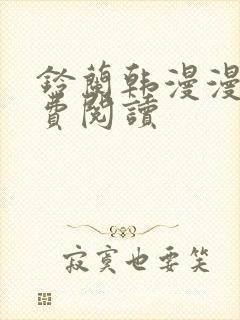 鈴蘭韩漫漫
費閱讀
寂寞也要笑